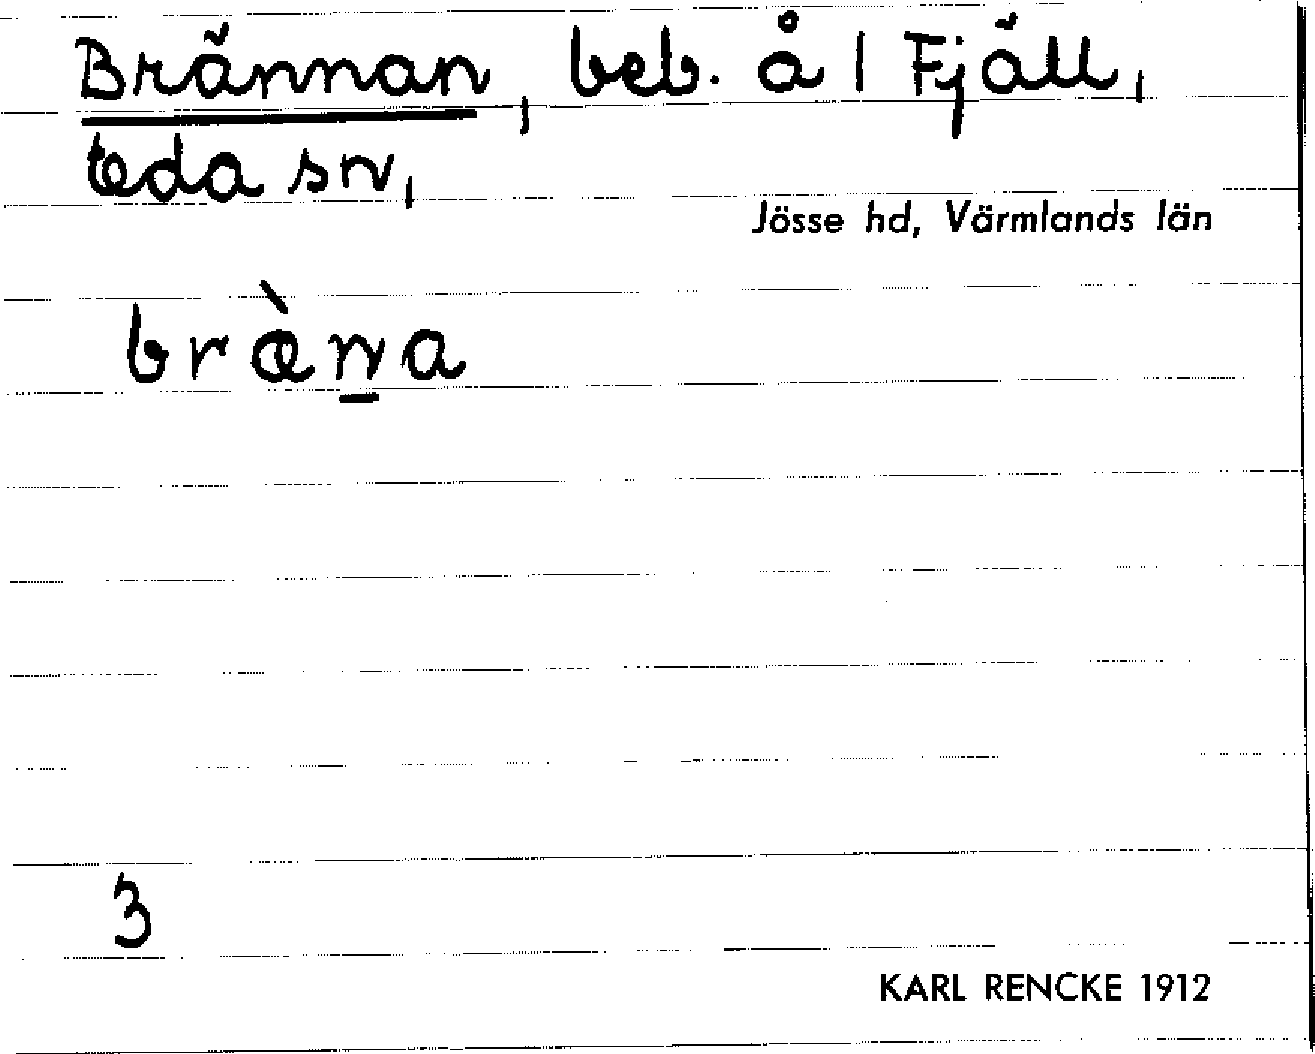 Brännan, beb. å 1 Fjäll,
Eda sn,
Jösse hd, Värmlands län
bræ̀n̲a
3
KARL RENCKE 1912